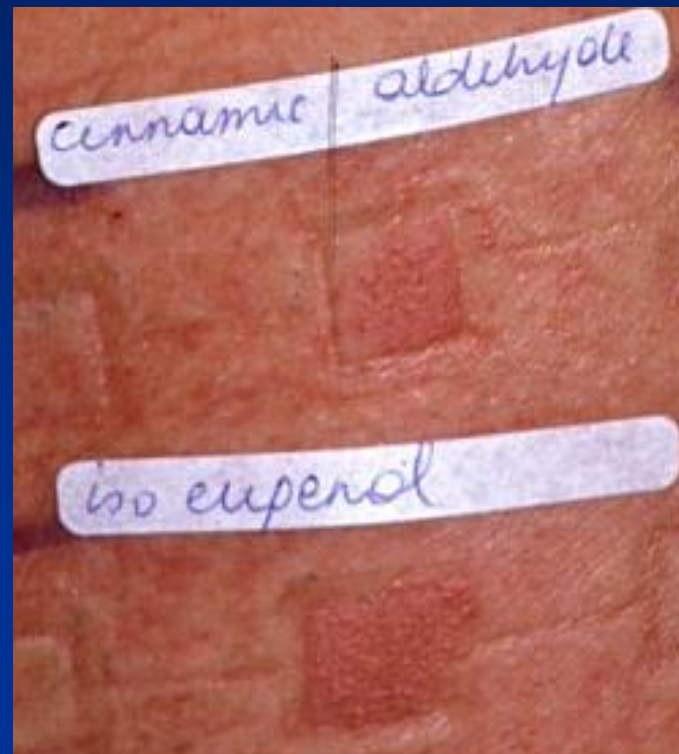 cinnamic aldehyde
iso eugenol